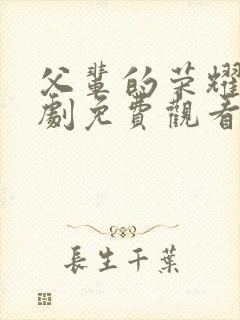 父輩的荣耀
劇免費觀看
長生千葉